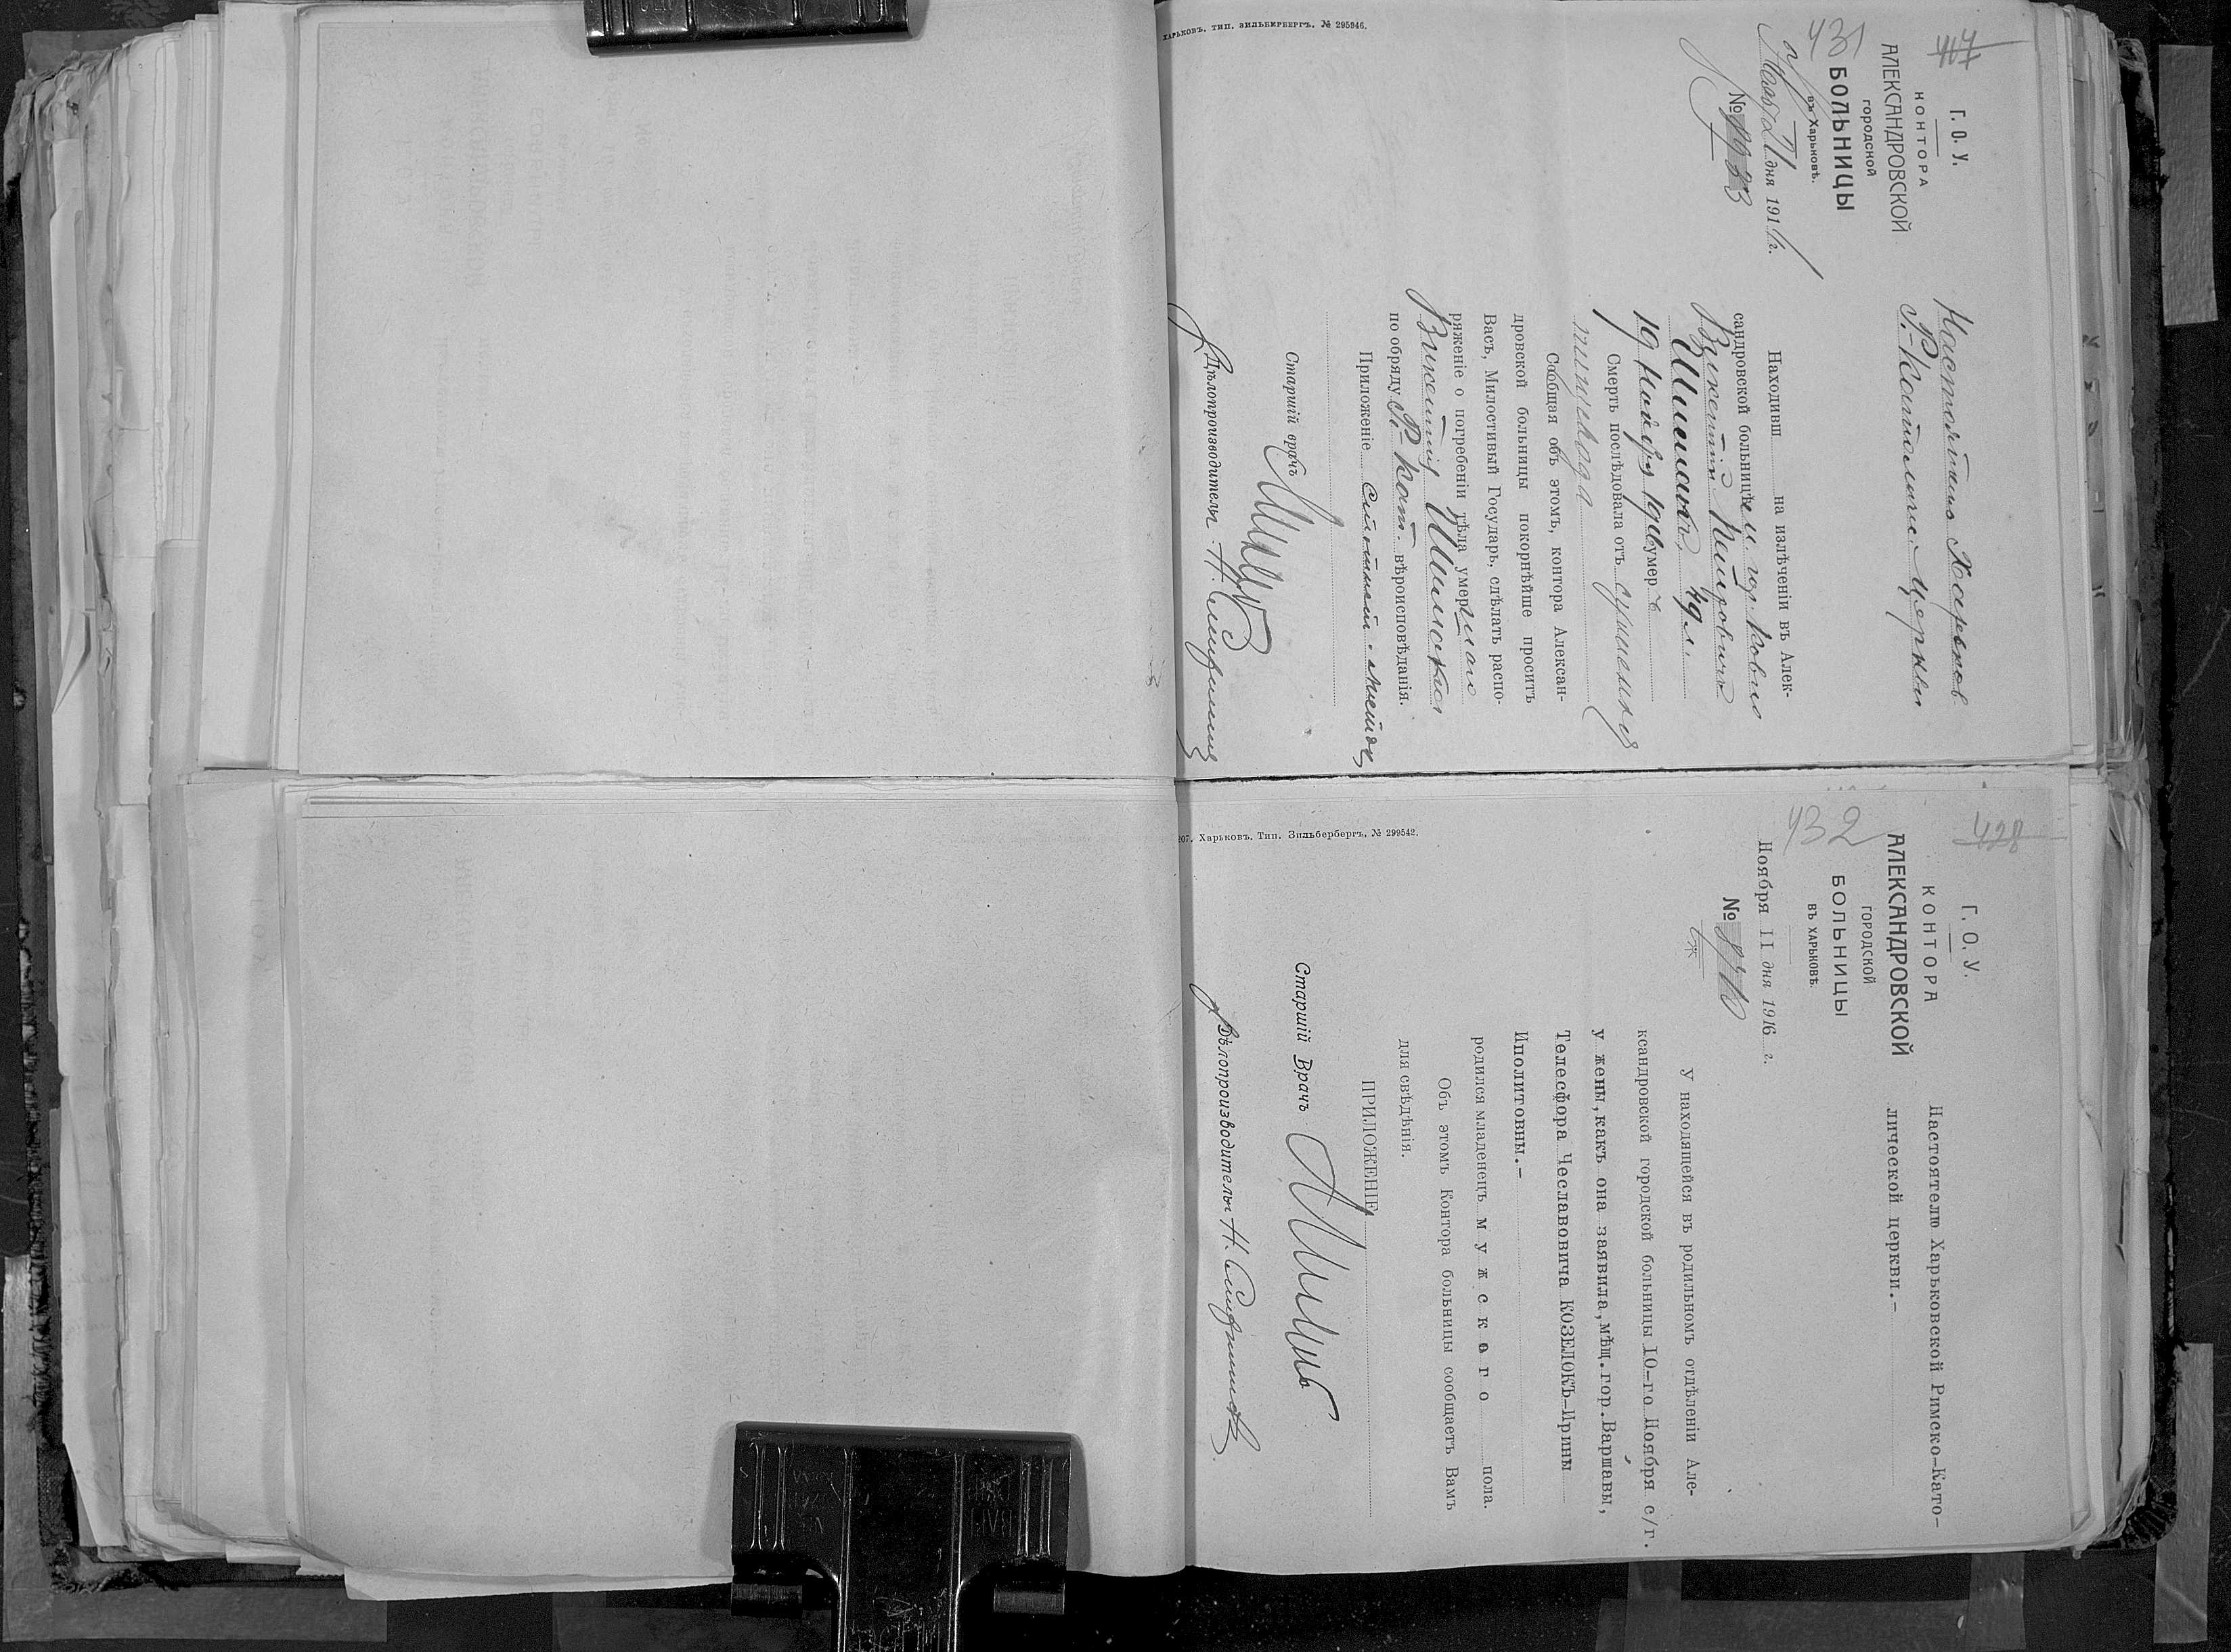 417
431
Г. О. У.
КОНТОРА
АЛЕКСАНДРОВСКОЙ
ГОРОДСКОЙ
БОЛЬНИЦЫ
въ Харьковѣ.
21 дня 191 г.
№
Настоятелю Харьков
Р.-Католич. церкви
Находивш на излѣченіи въ Алек-
сандровской больницѣ гор. Ковно
49 л.
19 Ноября 1916 умеръ
Смерть послѣдовала отъ
Сообщая объ этомъ, контора Алексан-
дровской больницы покорнѣйше проситъ
Васъ, Милостивый Государь, сдѣлать распо-
ряженіе о погребеніи тѣла умершаго
по обряду Р.-Кат. вѣроисповѣданія.
Приложеніе
Старшій врачъ
Дѣлопроизводитель
ХАРЬКОВЪ. ТИП. ЗИЛЬБЕРБЕРГЪ. № 295946.
428
432
Г. О. У.
КОНТОРА
АЛЕКСАНДРОВСКОЙ
ГОРОДСКОЙ
БОЛЬНИЦЫ
ВЪ ХАРЬКОВѢ.
Ноября 11 дня 1916 г.
№
Настоятелю Харьковской Римско-Като-
лической церкви.-
У находящейся въ родильномъ отдѣленіи Але-
ксандровской городской больницы 10-го Ноября с/г.
у жены, какъ она заявила, мѣщ. гор. Варшавы,
Телесфора Чеславовича КОЗЕЛОКЪ-Ирины
Иполитовны.-
родился младенецъ мужского пола.
Объ этомъ Контора больницы сообщаетъ Вамъ
для свѣдѣнія.
ПРИЛОЖЕНІЕ
Старшій Врачъ
Дѣлопроизводитель
207. Харьковъ. Тип. Зильбербергъ. № 299542.